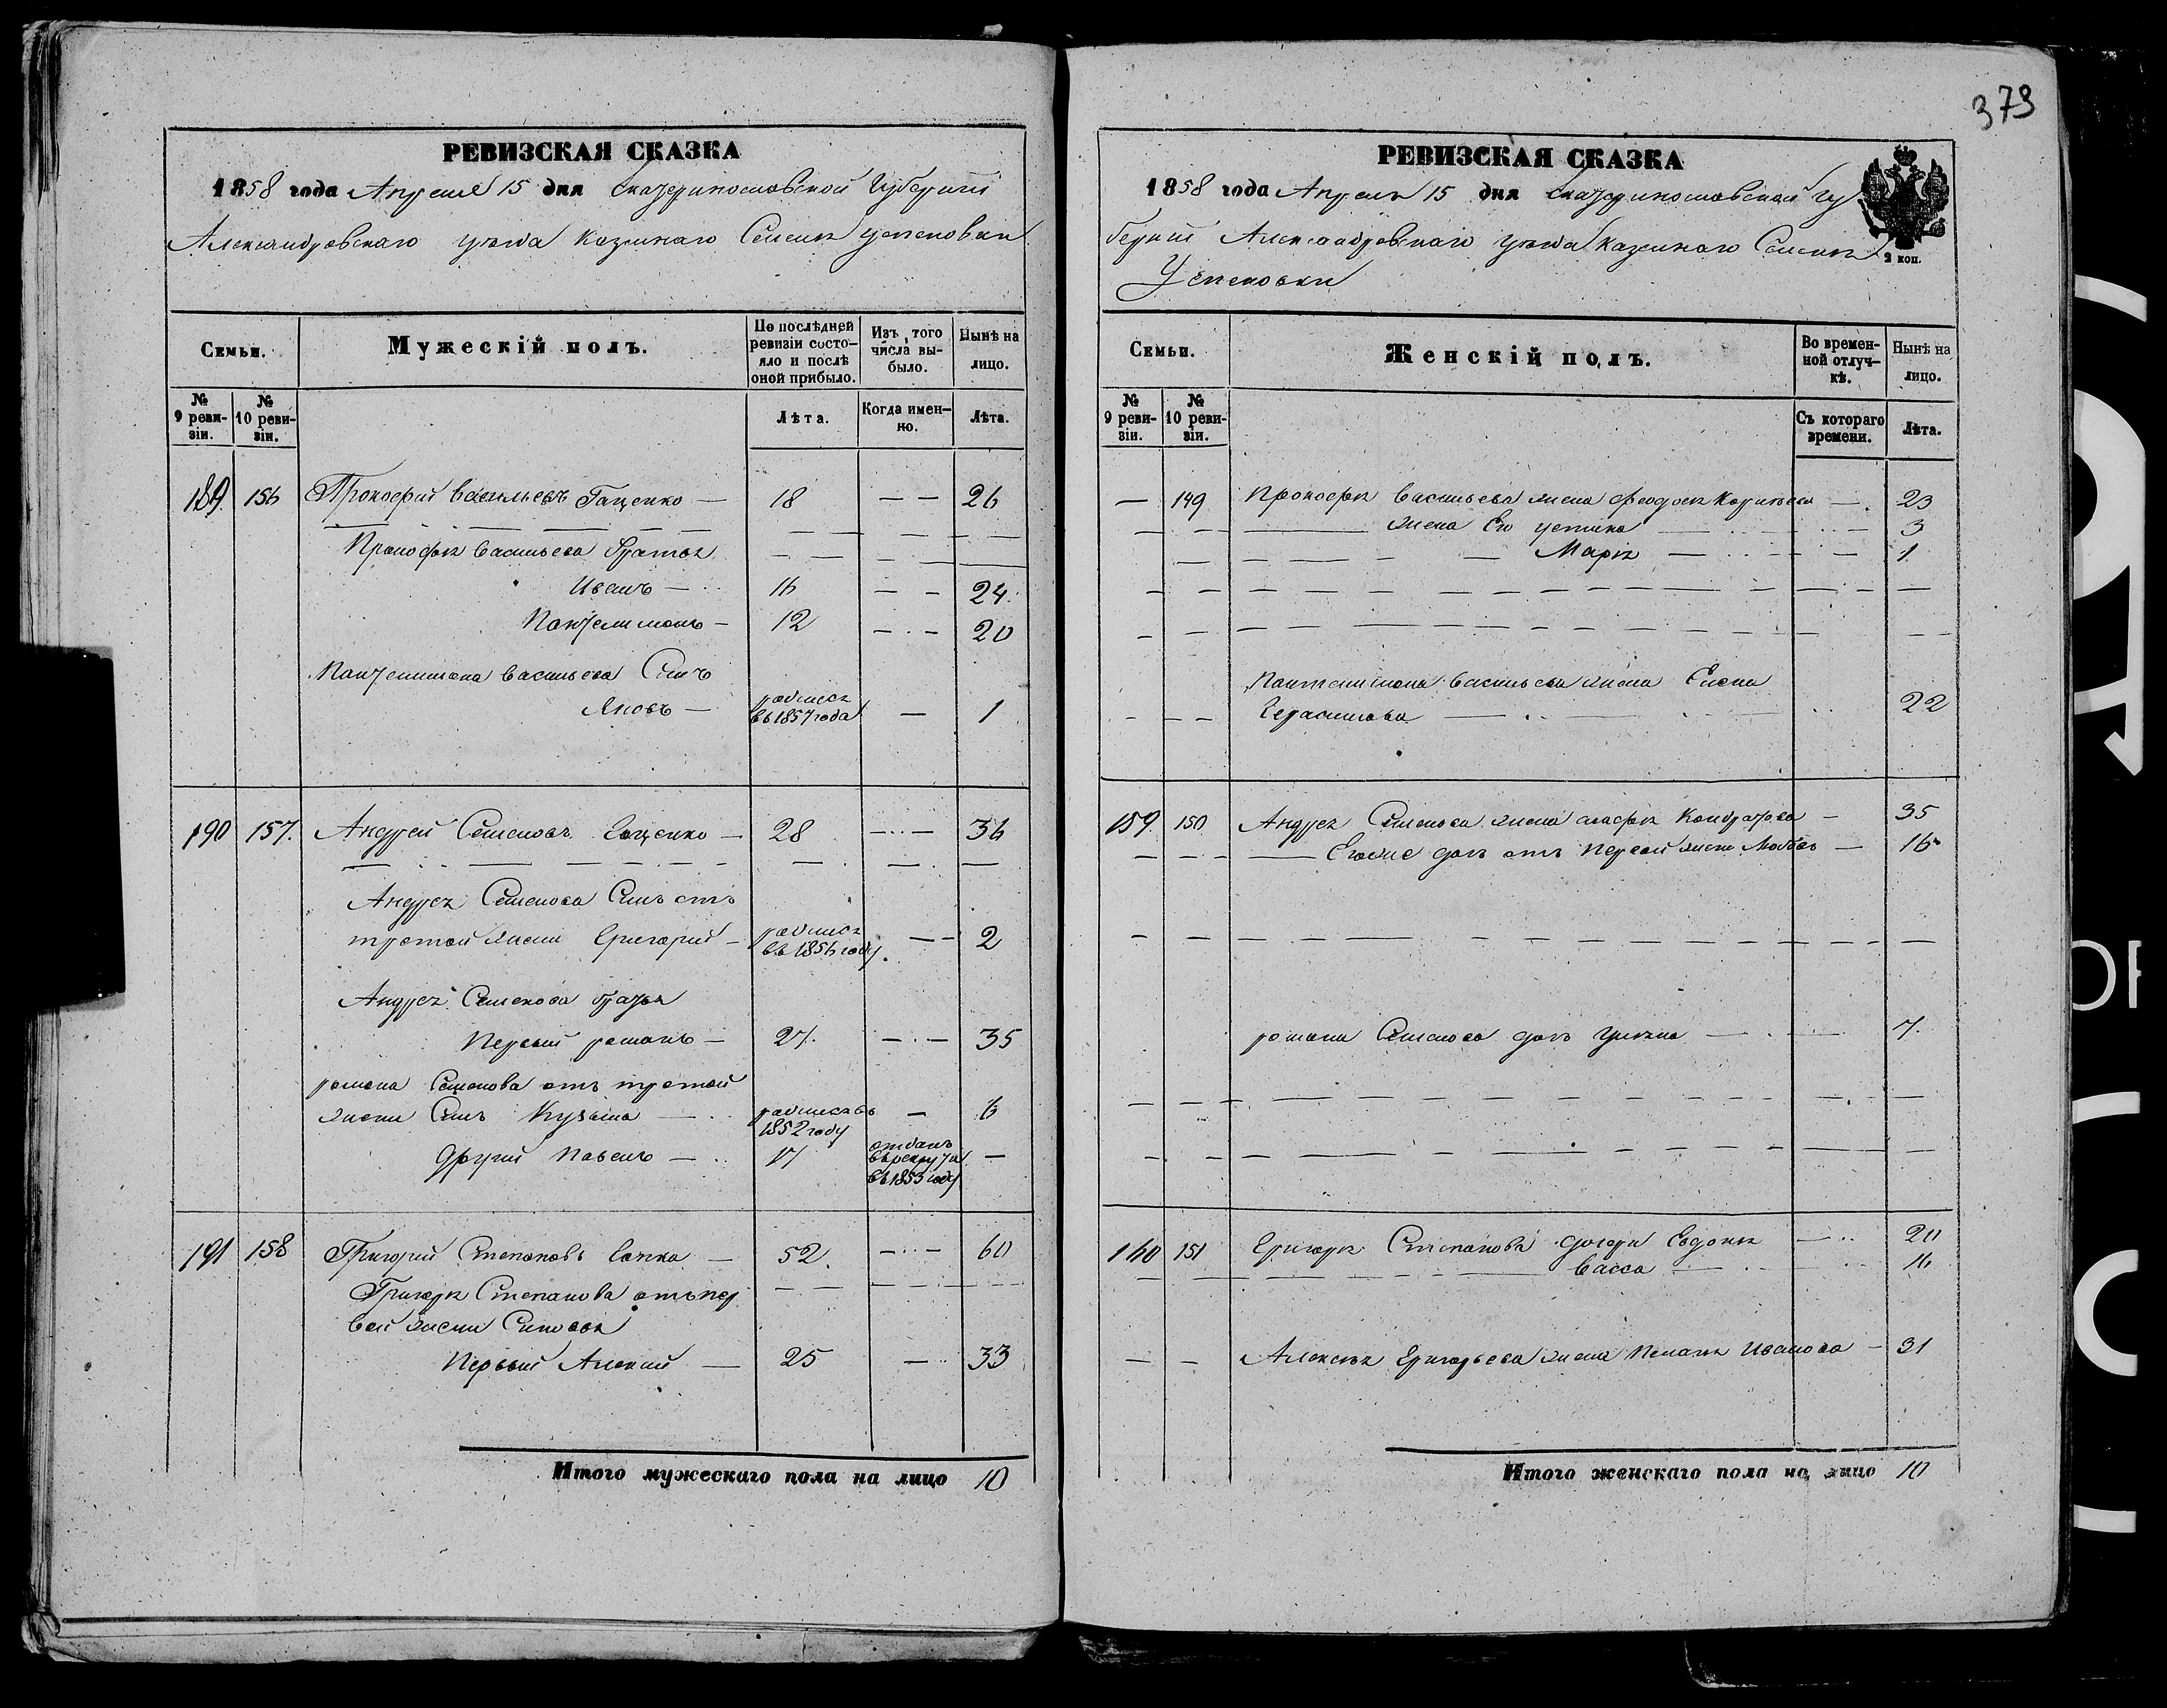 379
РЕВИЗСКАЯ СКАЗКА
1858 года Апреля 15 дня Екатеринославской Губернии
Александровскаго уезда Казеннаго Селения Успеновки
Семьи.
Мужескій полъ.
По послѣдней ревизіи состо-
яло и послѣ
оной прибыло.
Изъ того
числа вы-
было.
Нынѣ на
лицо.
№
9 реви-
зіи.
№
10 реви-
зіи.
Лѣта.
Когда имен-
но.
Лѣта.
189. 156 Прокофий Васильевъ Гаценко — 18 — — 26
Прокофия Васильева братья
Иванъ — 16 — — 24
Пантелимонъ — 12 — — 20
Пантелимона Васильева Сынъ
Яковъ — родился въ 1857 года — 1
190 157. Андрей Семеновъ Гаценко — 28 — 36
Андрея Семенова Сынъ отъ
третой жены Григорий — родился въ 1856 году — 2
Андрея Семенова братья
Первый романъ — 27. — 35
романа Семенова отъ третой
жены Сынъ Кузьма — родился въ 1852 году — 6
другий Павелъ — 17 отданъ въ рекруты въ 1853 году —
191 158 Григорий Степановъ — 52. — 60
Григория Степанова отъ пер
вой жены Сыновья
Первый Алексий — 25 — 33
Итого мужескаго пола на лицо 10
РЕВИЗСКАЯ СКАЗКА
1858 года Апреля 15 дня Екатеринославской Гу
бернии Александровскаго уезда Казеннаго Селения
Успеновки
2 коп.
Семьи.
Женскій полъ.
Во времен-
ной отлуч-
кѣ.
Нынѣ на
лицо.
№
9 реви-
зіи.
№
10 реви-
зіи.
Съ котораго
времени.
Лѣта.
— 149 Прокофия Васильева жена Феодосия — 23
Его устина — 3
Мария — 1
Пантелимона Васильева жена Елена
Герасимова — 22
159. 150. Андрея Семенова жена агафия Кондратова — 35
Егоже дочь отъ первой жены Любовь — 16
романа Семенова дочь — 7.
160 151 Григория Степанова дочери Евдокия — 20
Васса — 16
Алексия Григорьева жена Пелагия Иванова — 31
Итого женскаго пола на лицо 10